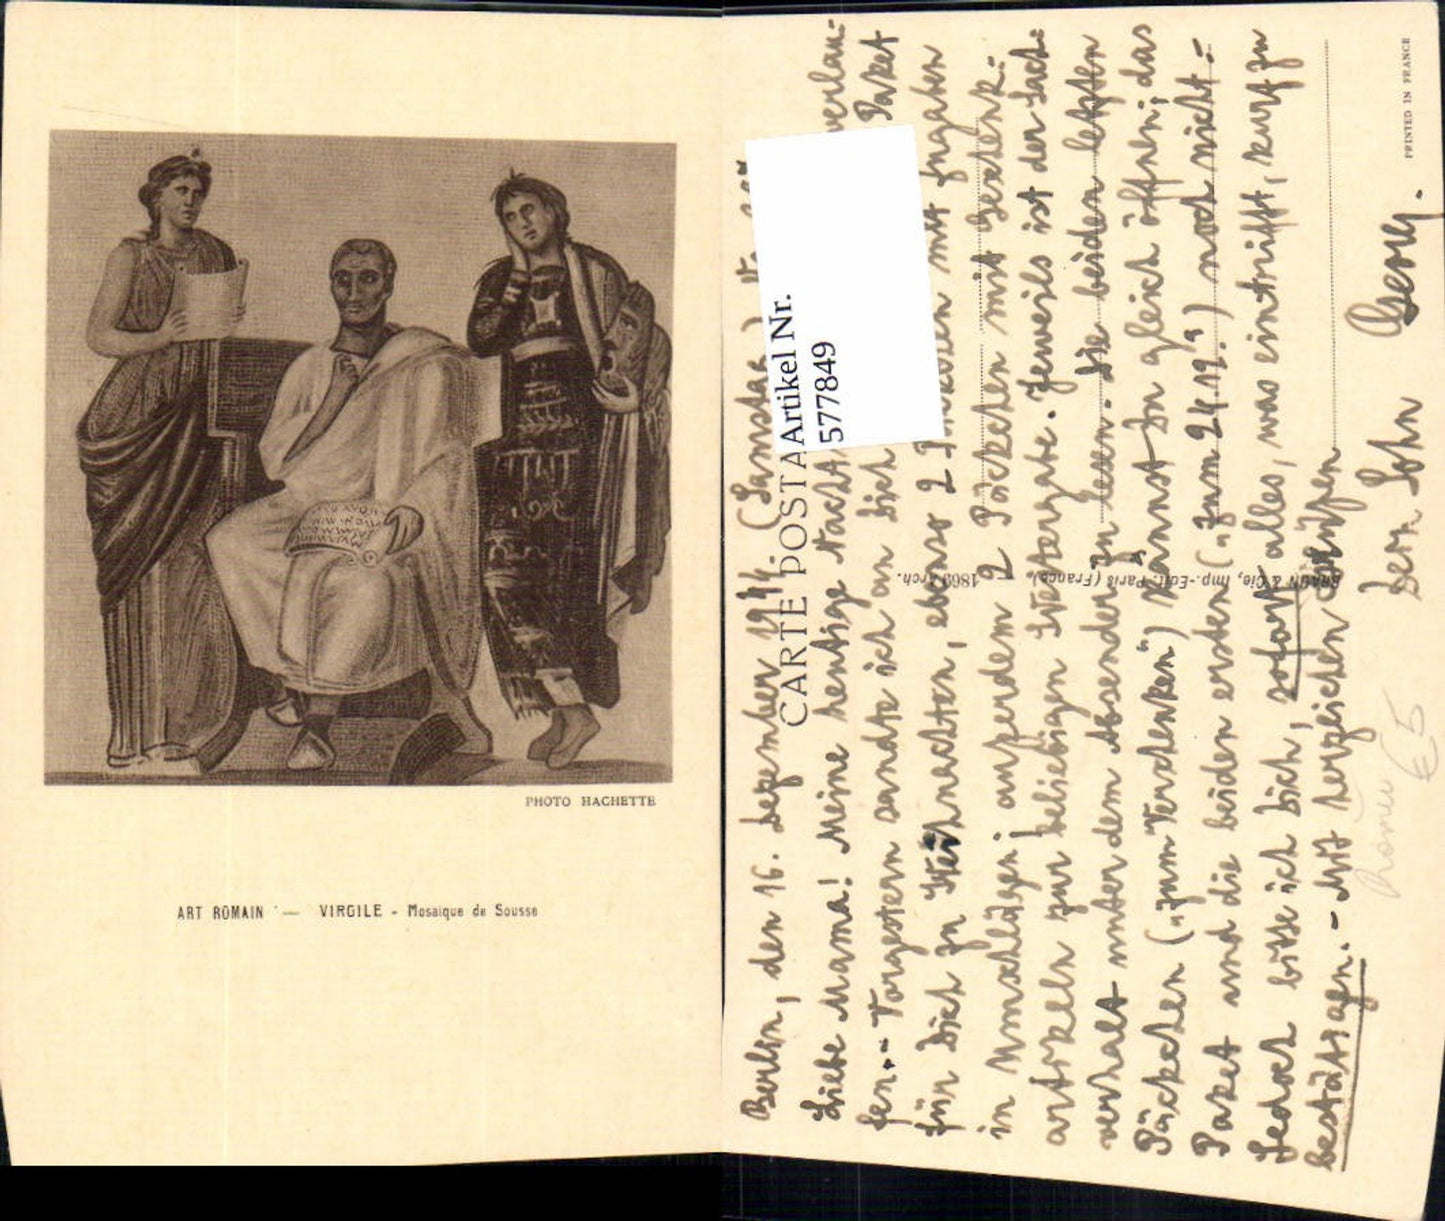 PHOTO HACHETTE
ART ROMAIN — VIRGILE - Mosaïque de Sousse
Artikel Nr.
577849
CARTE POSTA
BRAUN & Cie, Imp.-Edit. Paris (France)
1863 Arch.
PRINTED IN FRANCE
Berlin, den 16. Dezember 1944. (Samstag)
Liebe Mama! Meine heutige Nacht verlau-
fen. - Vorgestern sandte ich an Dich Paket
für Dich zu Weihnachten, ebenso 2 mit Zugaben
in Umschlägen; außerdem 2 Päckchen mit Geschenk-
artikeln zur beliebigen Weitergabe. Jeweils ist der Sach-
verhalt unter dem Absender zu lesen. Die beiden letzten
Päckchen („zum Verschenken") kannst Du gleich öffnen; das
Paket und die beiden ersten („zum 24.12.") noch nicht. -
Jedoch bitte ich Dich, sofort alles, was eintrifft, kurz zu
bestätigen. - Mit herzlichen Grüßen
Dein Sohn Georg.
€ 5